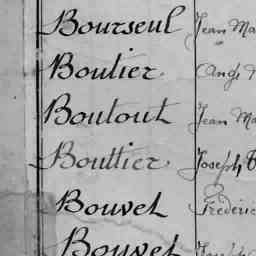 Bourseul Jean Ma
Boutier. Ang.
Boutout Jean Ma
Bouttier. Joseph
Bouvet Frédéric
Bouvet Joseph